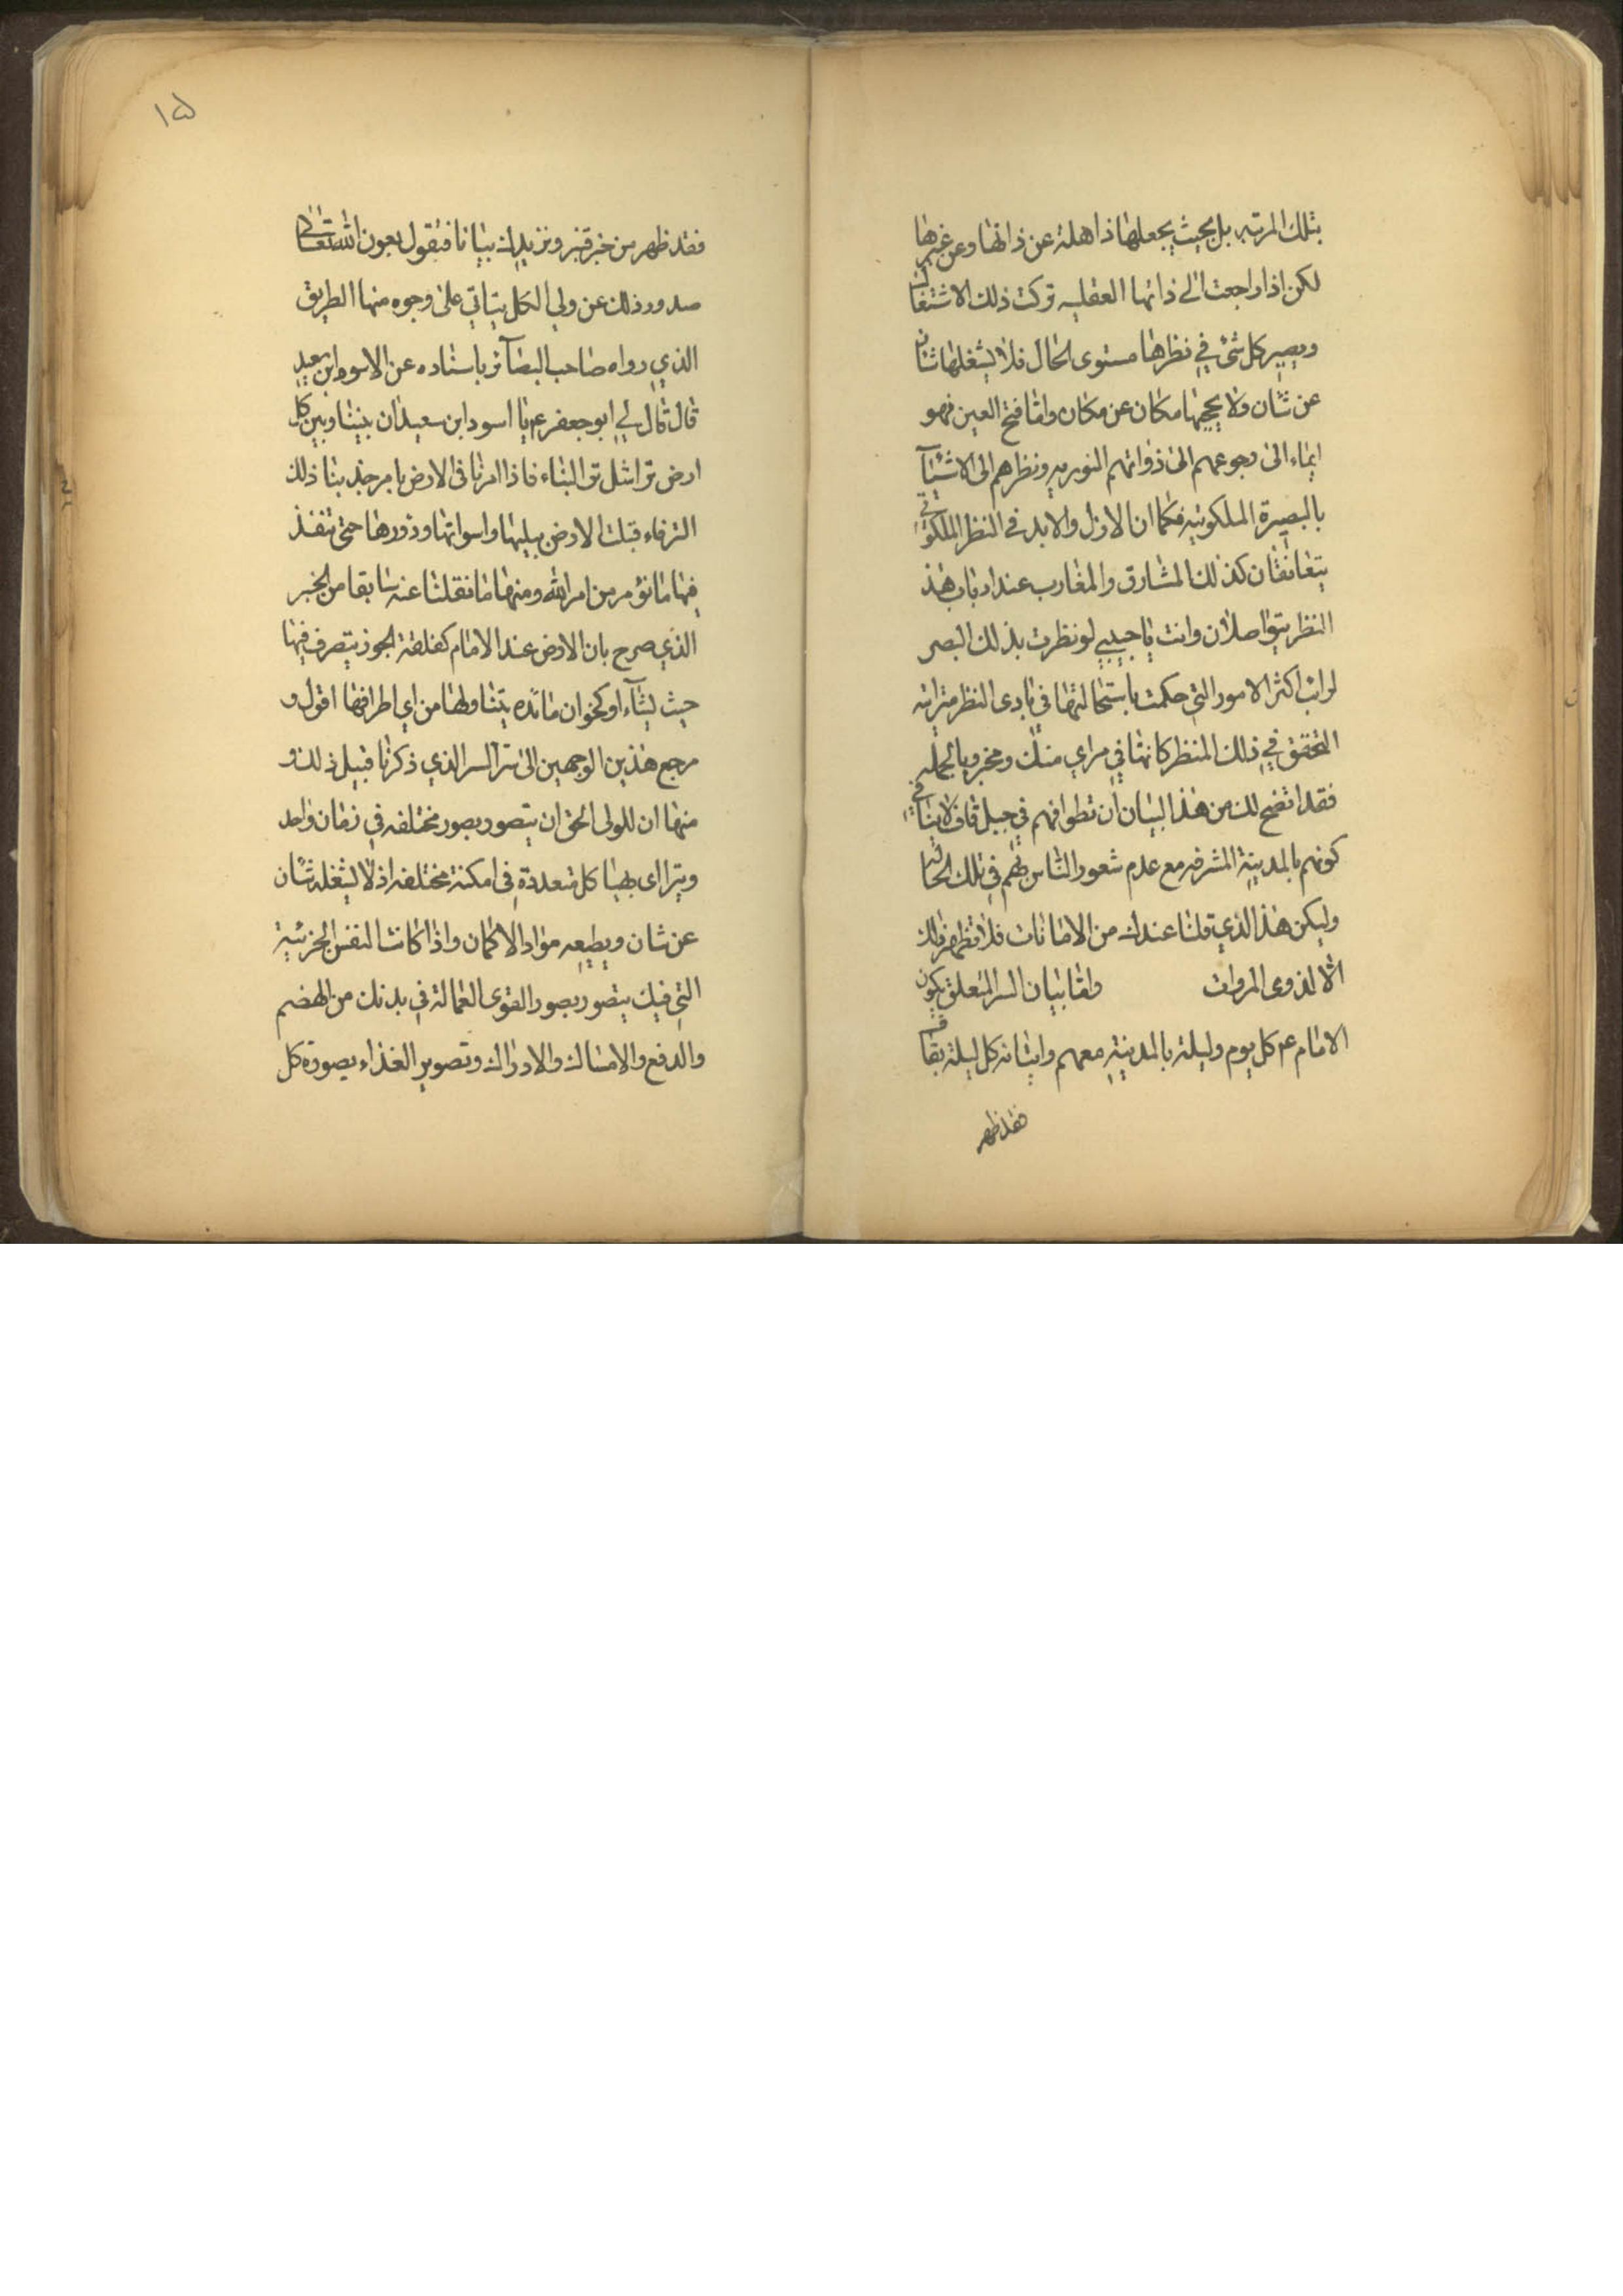 بتلك المرتبه بل بحيث يجعلها ذاهلة عن ذاتها وعن غيرها
لكن اذا راجعت الى ذاتها العقليه تركت ذلك الاشتغال
ويصير كل شئ في نظرها مستوى الحال فلا يشغلها شان
عن شان ولا يحجبها مكان عن مكان واما فتح العين فهو
ايماء الى رجوعهم الى ذواتهم النوريه ونظرهم الى الاشيآ
بالبصيرة الملكوتيه فكما ان الازل والابد في النظر الملكوتي
يتعانقان كذلك المشارق والمغارب عند ارباب هذ
النظر يتواصلان وانت يا حبيبي لو نظرت بذلك البصر
لرايت اكثر الامور التي حكمت باستحالتها في بادى النظر متراته
التحقق في ذلك المنظر كانها في مراي منك ومخبر وبالجمله
فقد اتضح لك من هذا البيان ان تطوافهم في جبل قاف لا ينافي
كونهم بالمدينة المشرفه مع عدم شعور الناس بهم في تلك الحاله
وليكن هذا الذي قلنا عندك من الامانات فلا تظهر ذلك
الا لذوى المروات واما بيان السر المتعلق بكون
الامام عم كل يوم وليلة بالمدينة معهم واتيانه كل ليلة بقاف
فقد ظهر
١٥
فقد ظهر من خبر قنبر ونزيدك بيانا فنقول بعون الله تعالى
صدور ذلك عن ولي الكل يتاتي على وجوه منها الطريق
الذي رواه صاحب البصآئر باسناده عن الاسود ابن سعيد
قال قال لي ابو جعفر عم يا اسود ابن سعيد ان بيننا وبين كل
ارض ترا مثل تر البناء فاذا امرنا في الارض بامر جذبنا ذلك
التر فاء قبلت الارض بقليبها واسواقها ودورها حتى تنفذ
فيها ما نؤمر من امر الله ومنها ما نقلنا عنه سابقا من الخبر
الذي صرح بان الارض عند الامام كفلقة الجوز يتصرف فيها
حيث يشآء او كخوان مائده يتناولها من اي اطرافها اقول و
مرجع هذين الوجهين الى سر السر الذي ذكرنا قبيل ذلك و
منها ان للولى الحق ان يتصور بصور مختلفه في زمان واحد
ويتراى بهياكل متعددة في امكنة مختلفه اذ لا يشغله شان
عن شان ويطيعه مواد الاكمان واذا كانت النفس الجزئية
التي فيك يتصور بصور القوى العمالة في بدنك من الهضم
والدفع والامساك والادراك وتصوير الغذاء بصورة كل